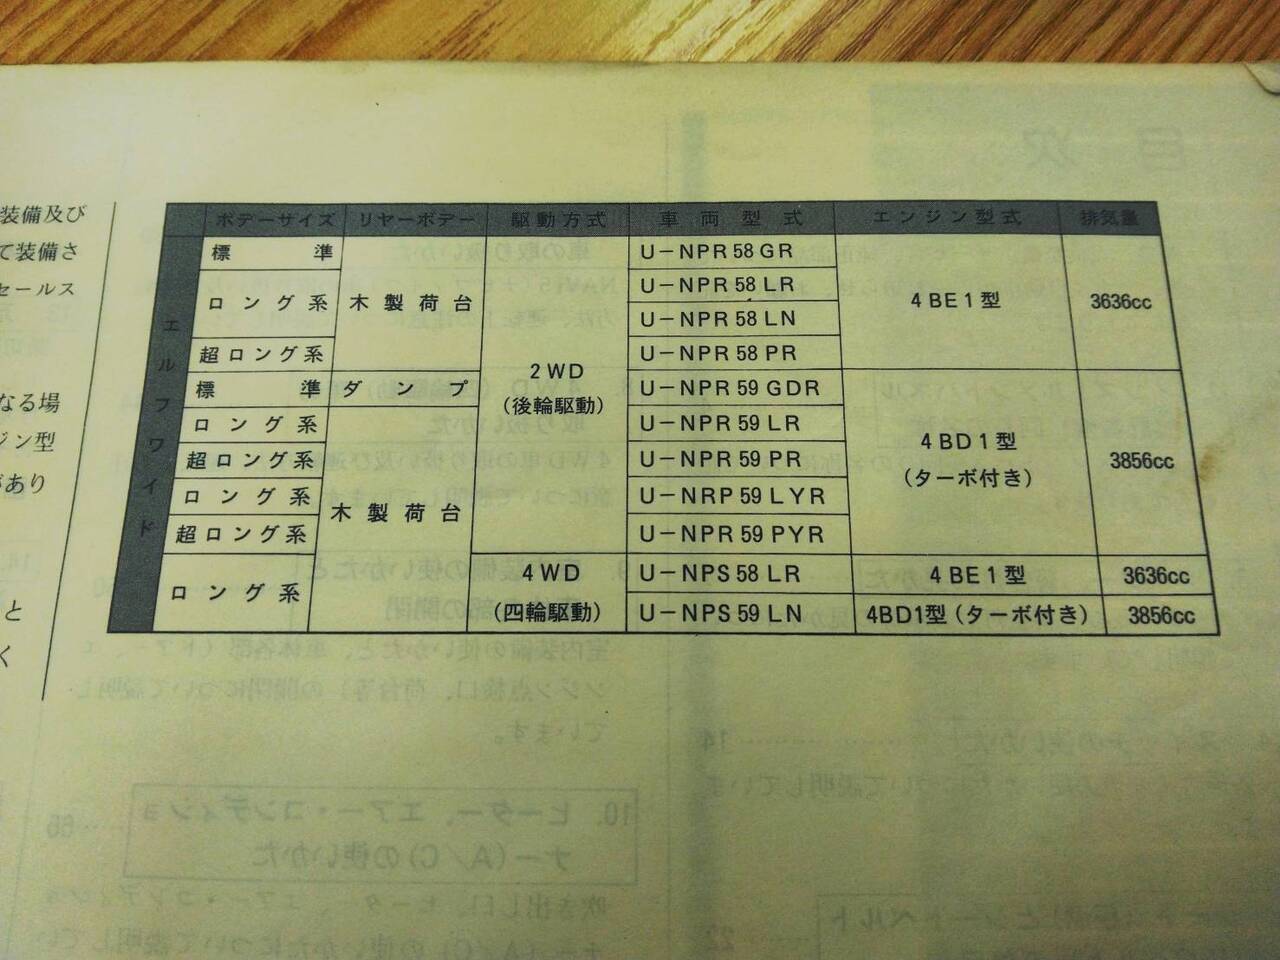 装備及び
て装備さ
セールス
なる場
ジン型
があり
と
く
ボデーサイズ リヤーボデー 駆動方式 車両型式 エンジン型式 排気量
エルフワイド
標準 木製荷台 2WD (後輪駆動) U-NPR58GR 4BE1型 3636cc
ロング系 U-NPR58LR
U-NPR58LN
超ロング系 U-NPR58PR
標準 ダンプ U-NPR59GDR 4BD1型 (ターボ付き) 3856cc
ロング系 木製荷台 U-NPR59LR
超ロング系 U-NPR59PR
ロング系 U-NRP59LYR
超ロング系 U-NPR59PYR
ロング系 4WD (四輪駆動) U-NPS58LR 4BE1型 3636cc
U-NPS59LN 4BD1型(ターボ付き) 3856cc
目次
10. ヒーター、エアー・コンディショ
ナー(A/C)の使いかた